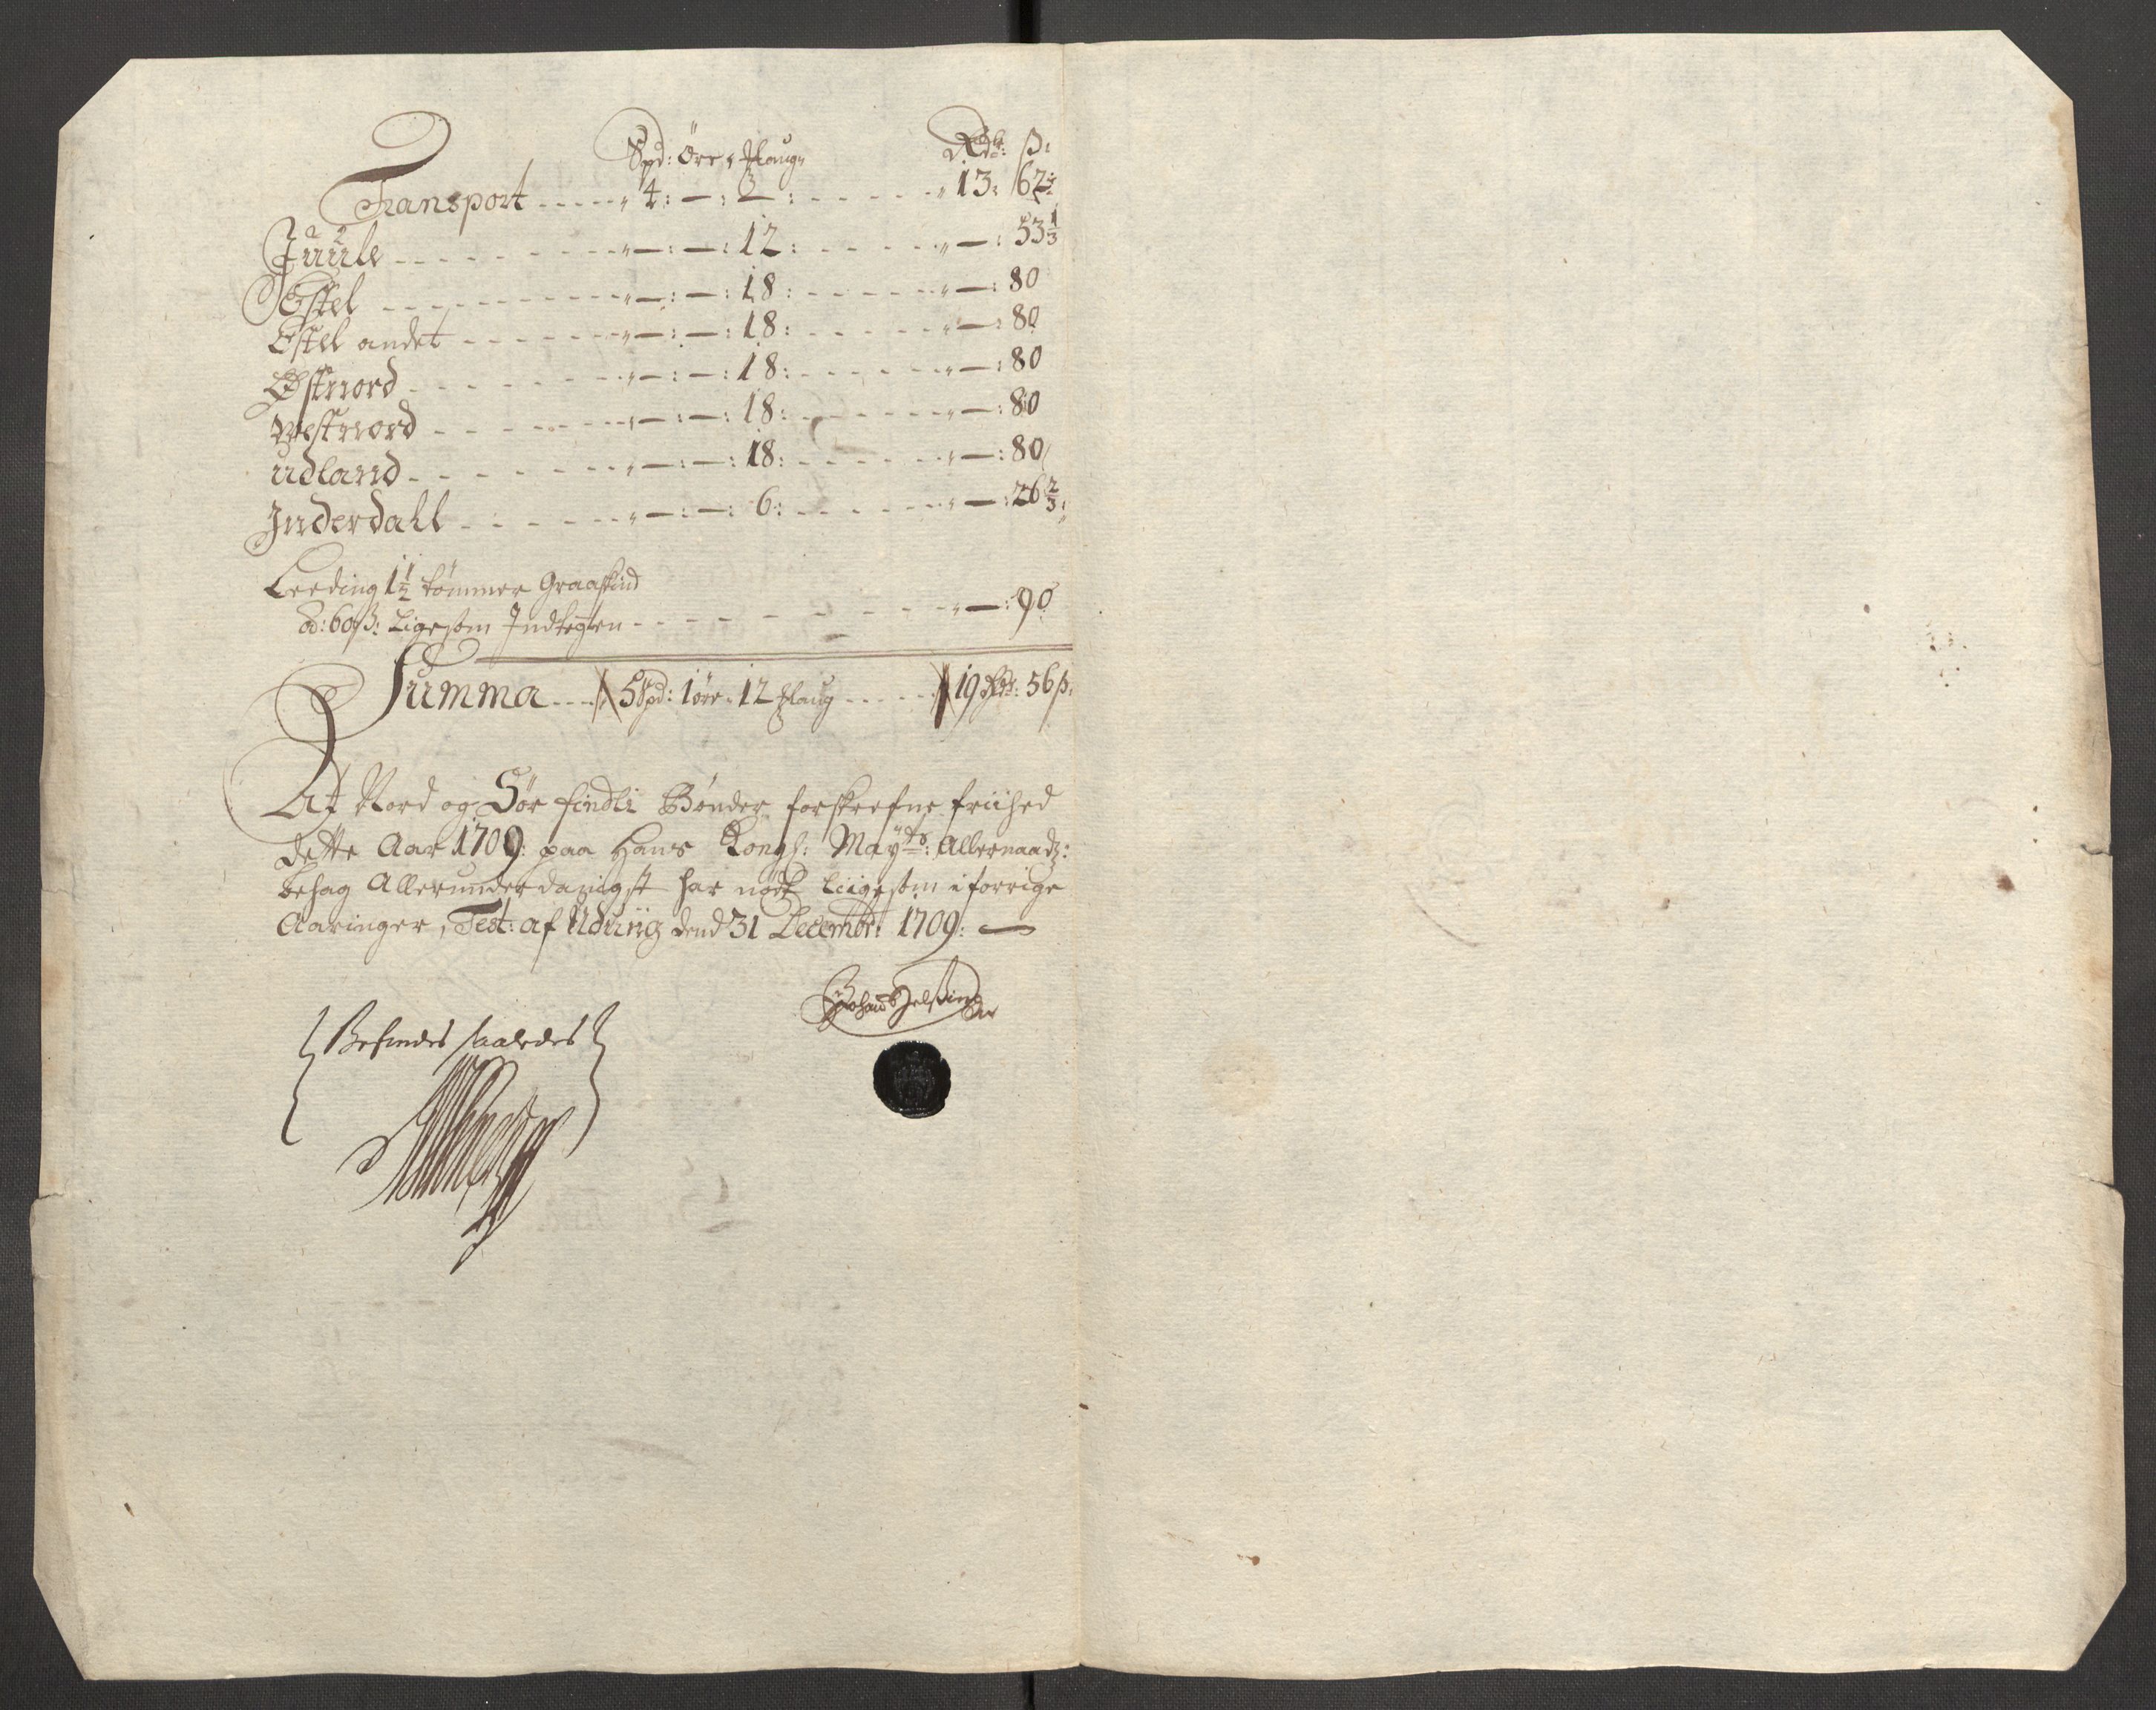 Spd: öre, Klaug, Rdr: ß:
Transport - - - - - „ 4: — : 2 — : - - - - - „ 13: 62
Juule - - - - - - - „ — : — : 12: - - - - - „ — : 53 1/3
Østel - - - - - - - „ — : — : 18: - - - - - „ — : 80
Østel andet - - - - - - - „ — : — : 18: - - - - - „ — : 80
Østnord - - - - - - - „ — : — : 18: - - - - - „ — : 80
Westnord - - - - - - - „ — : — : 18: - - - - - „ — : 80
Udland - - - - - - - „ — : — : 18: - - - - - „ — : 80
Inderdall - - - - - - „ — : — : 6: - - - - - „ — : 26 2/3:
Leeding 1 1/2 tømmer Graaskind
a: 60 ß: Ligesom Indtegten - - - - - - - - „ — : 90
Summa - - - 5 Spd: 1 øre, 12 Klaug - - - - 19 Rdr: 56 ß:
At Nord og Sør findli Bønder forskrefne friihed
dette Aar 1709: paa Hans Kongl: Mayts: Allernaadg:
behag Allerunderdanigst har nødt liigesom i forrige
Aaringer, Test: af Uduiig dend 31 Decembr: 1709: —
Befindes saaledes